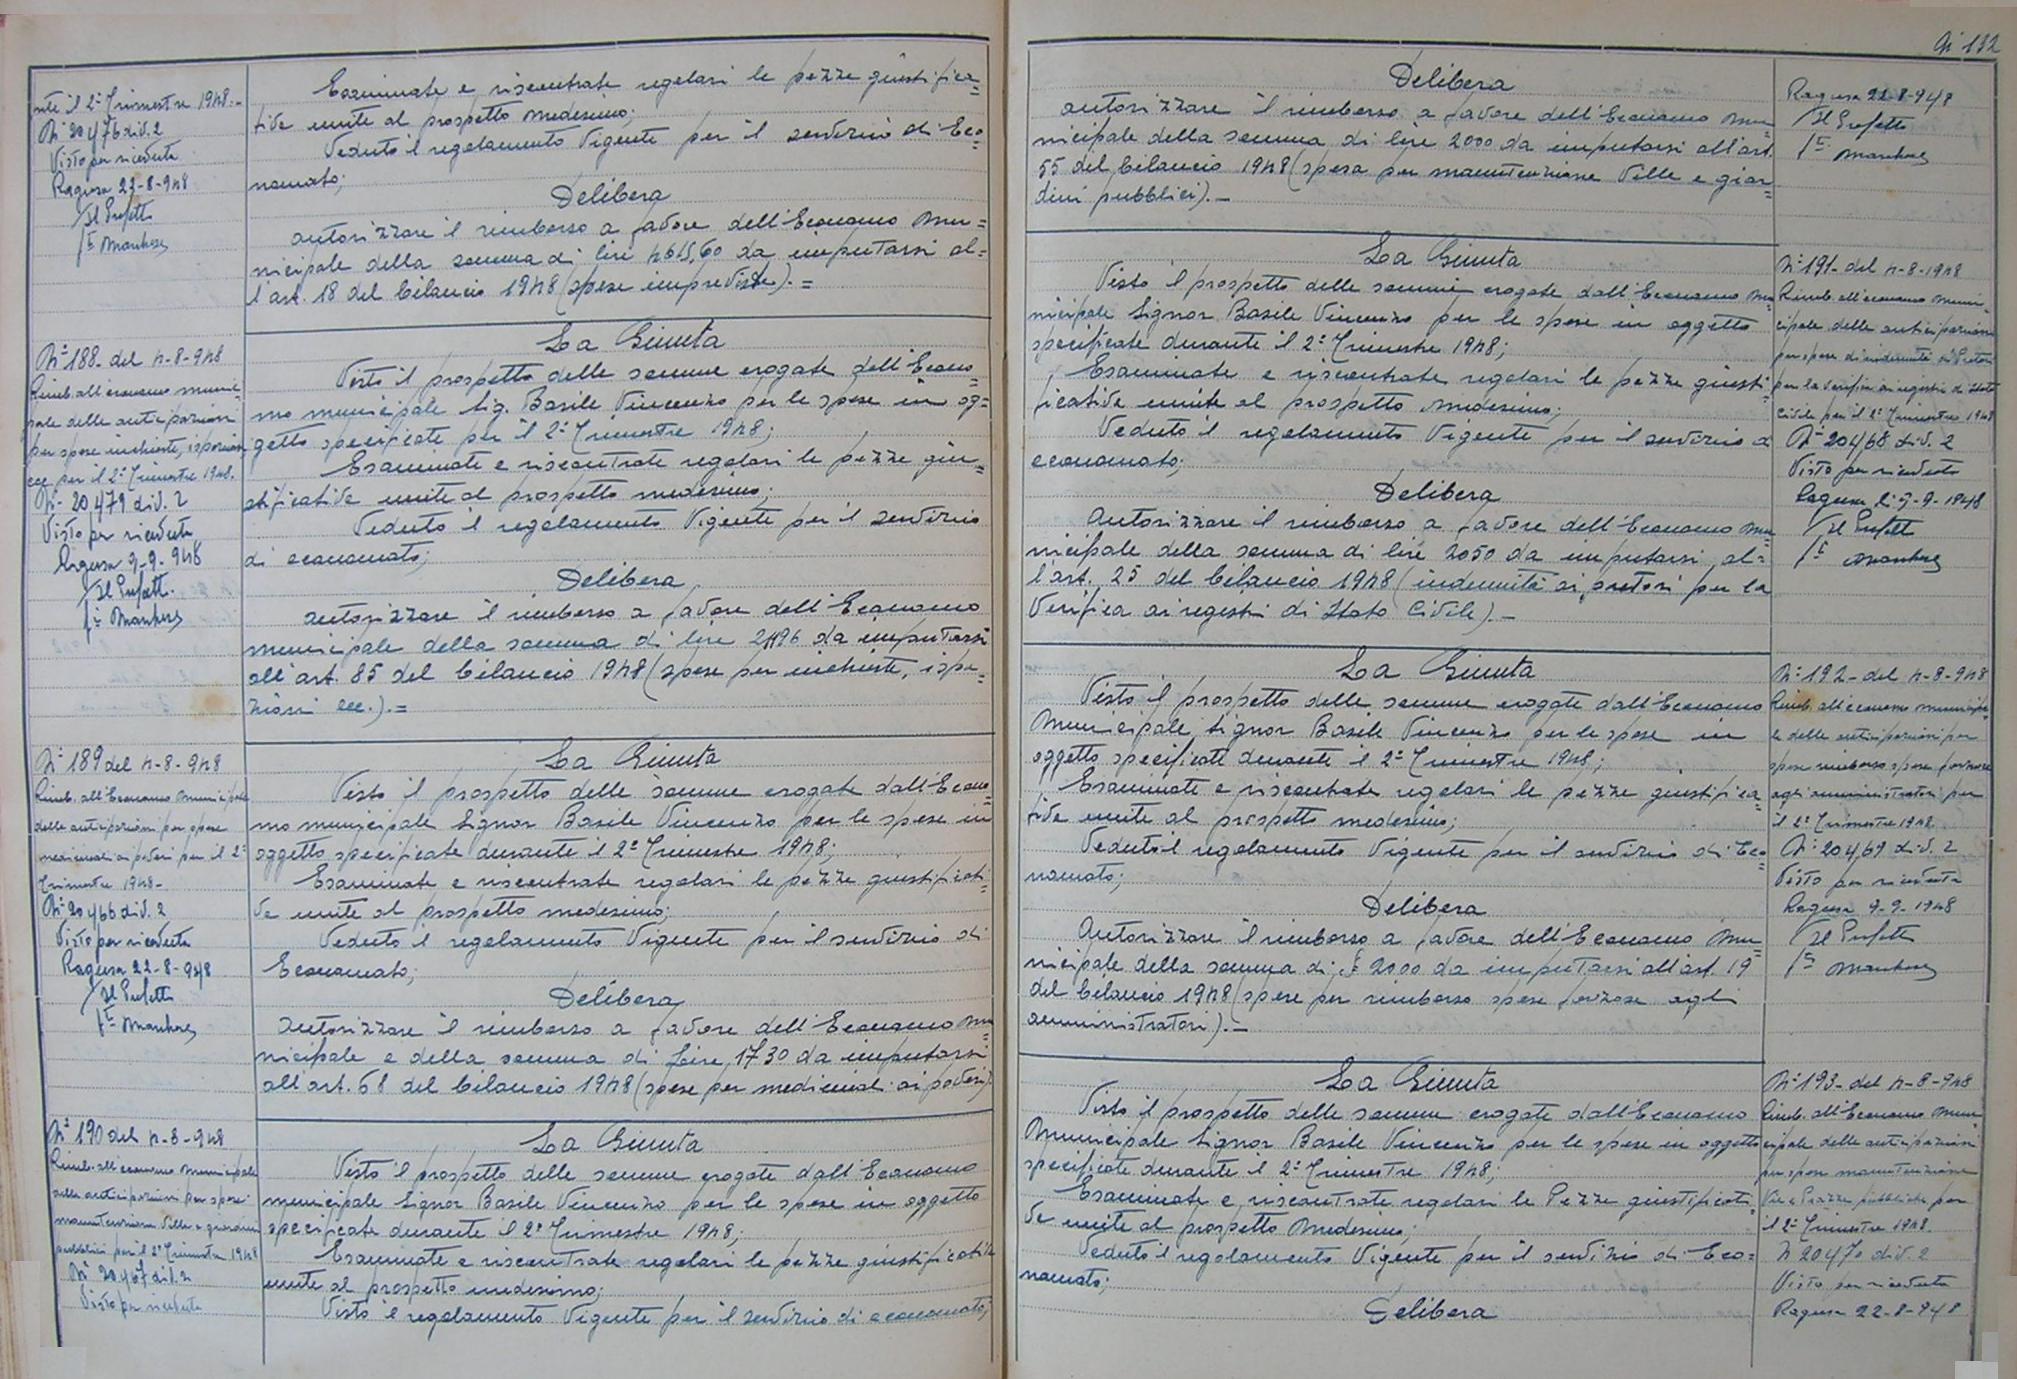 nte il 2º Trimestre 1948.-
Nº 20476 div. 2
Visto per ricevuta
Ragusa 23-8-948
Il Prefetto
Esaminate e riscontrate regolari le pezze giustifica=
tive unite al prospetto medesimo;
Veduto il regolamento vigente per il servizio di Eco=
nomato;
Delibera
autorizzare il rimborso a favore dell'Economo Mu=
nicipale della somma di lire 4615,60 da imputarsi al=
l'art. 18 del bilancio 1948 (spese impreviste).=
Nº 188- del 4-8-948
Rimb. all'economo munici
pale delle anticipazioni
per spese inchieste, ispezioni
ecc per il 2º Trimestre 1948.
Nº- 20479 div. 2
Visto per ricevuta
Ragusa 9-9-948
Il Prefetto
La Giunta
Visto il prospetto delle somme erogate dall'Econo=
mo municipale Sig. Basile Vincenzo per le spese in og=
getto specificate per il 2º Trimestre 1948;
Esaminate e riscontrate regolari le pezze giu=
stificative unite al prospetto medesimo;
Veduto il regolamento vigente per il servizio
di economato;
Delibera
autorizzare il rimborso a favore dell'Economo
municipale della somma di lire 2496 da imputarsi
all'art. 85 del bilancio 1948 (spese per inchieste, ispe=
zioni ecc.).=
Nº 189 del 4-8-948
Rimb. all'Economo Municipale
delle anticipazioni per spese
medicinali ai poveri per il 2º
Trimestre 1948-
Nº 20466 div. 2
Visto per ricevuta
Ragusa 22-8-948
Il Prefetto
La Giunta
Visto il prospetto delle somme erogate dall'Econo=
mo municipale Signor Basile Vincenzo per le spese in
oggetto specificate durante il 2º Trimestre 1948;
Esaminate e riscontrate regolari le pezze giustificati=
ve unite al prospetto medesimo;
Veduto il regolamento vigente per il servizio di
Economato;
Delibera
autorizzare il rimborso a favore dell'Economo Mu=
nicipale e della somma di Lire 1730 da imputarsi
all'art. 68 del bilancio 1948 (spese per medicinali ai poveri)
Nº 190 del 4-8-948
Rimb. all'economo municipale
delle anticipazioni per spese
manutenzione Ville e giardini
pubblici per il 2º Trimestre 1948
Nº 20467 div. 2
Visto per ricevuta
La Giunta
Visto il prospetto delle somme erogate dall'Economo
municipale Signor Basile Vincenzo per le spese in oggetto
specificate durante il 2º Trimestre 1948;
Esaminate e riscontrate regolari le pezze giustificative
unite al prospetto medesimo;
Visto il regolamento vigente per il servizio di economato;
132
Delibera
autorizzare il rimborso a favore dell'Economo Mu=
nicipale della somma di lire 2000 da imputarsi all'art.
55 del bilancio 1948 (spesa per manutenzione Ville e giar=
dini pubblici).-
Ragusa 22-8-948
Il Prefetto
La Giunta
Visto il prospetto delle somme erogate dall'Economo Mu=
nicipale Signor Basile Vincenzo per le spese in oggetto
specificate durante il 2º Trimestre 1948;
Esaminate e riscontrate regolari le pezze giusti=
ficative unite al prospetto medesimo;
Veduto il regolamento vigente per il servizio di
economato;
Delibera
Autorizzare il rimborso a favore dell'Economo Mu=
nicipale della somma di lire 2050 da imputarsi al=
l'art. 25 del bilancio 1948 (indennità ai pretori per la
verifica ai registri di Stato Civile).-
Nº 191- del 4-8-1948
Rimb. all'economo Muni-
cipale delle anticipazioni
per spese di indennità ai Pretori
per la verifica ai registri di Stato
Civile per il 2º Trimestre 1948
Nº 20468 div. 2
Visto per ricevuta
Ragusa li 9-9-1948
Il Prefetto
La Giunta
Visto il prospetto delle somme erogate dall'Economo
Municipale, Signor Basile Vincenzo per le spese in
oggetto specificate durante il 2º Trimestre 1948;
Esaminate e riscontrate regolari le pezze giustifica=
tive unite al prospetto medesimo;
Veduto il regolamento vigente per il servizio di Eco=
nomato;
Delibera
Autorizzare il rimborso a favore dell'Economo Mu=
nicipale della somma di £ 2000 da imputarsi all'art. 19
del bilancio 1948 (spese per rimborso spese forzose agli
amministratori).-
Nº 192- del 4-8-948
Rimb. all'economo municipa-
le delle anticipazioni per
spese rimborso spese forzose
agli amministratori per
il 2º Trimestre 1948
Nº 20469 div. 2
Visto per ricevuta
Ragusa 9-9-1948
Il Prefetto
La Giunta
Visto il prospetto delle somme erogate dall'Economo
Municipale Signor Basile Vincenzo per le spese in oggetto
specificate durante il 2º Trimestre 1948;
Esaminate e riscontrate regolari le Pezze giustificati
ve unite al prospetto Medesimo;
Veduto il regolamento vigente per il servizio di Eco=
nomato;
Delibera
Nº 193- del 4-8-948
Rimb. all'Economo Muni
cipale delle anticipazioni
per spese manutenzione
Vie e Piazze pubbliche per
il 2º Trimestre 1948.
N 20470 div. 2
Visto per ricevuta
Ragusa 22-8-948